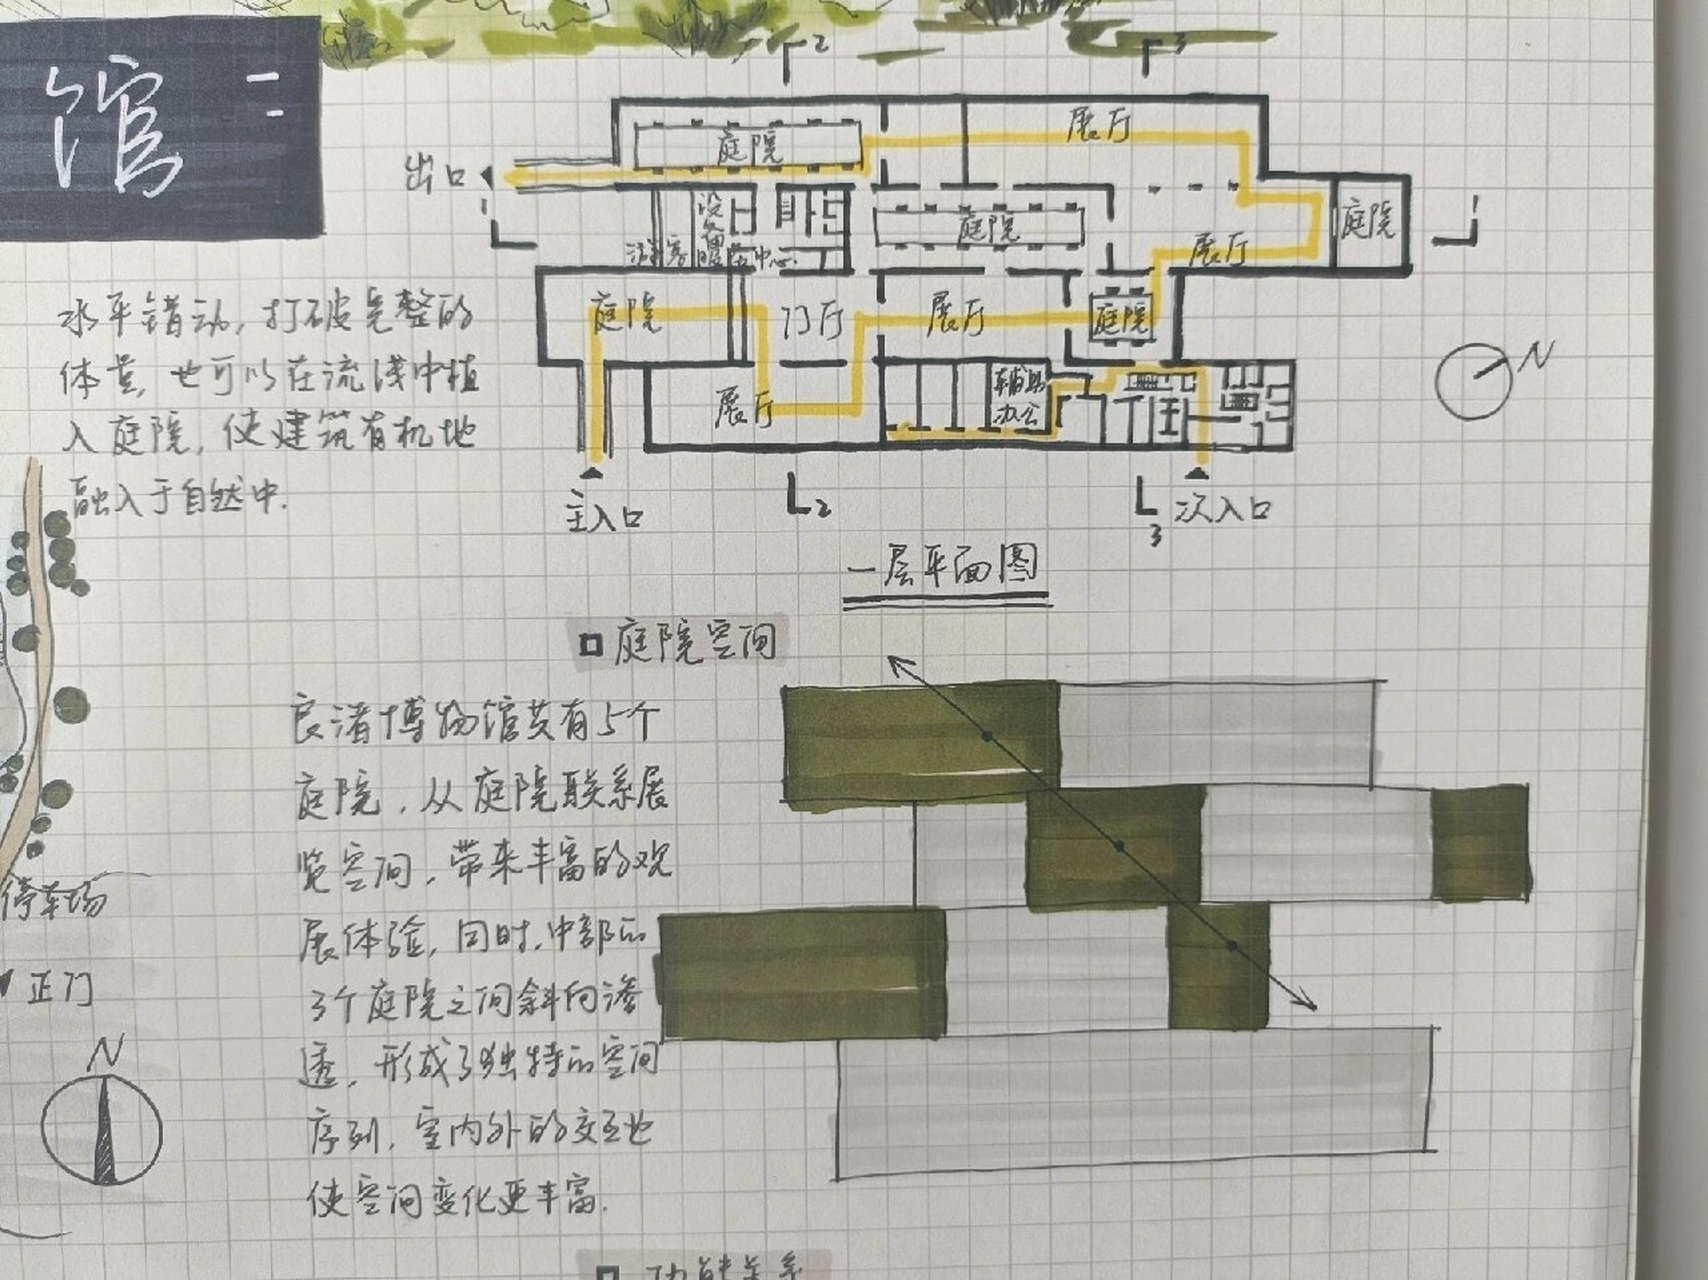 馆
2
3
展厅
庭院
出口
1
设备间
庭院
庭院
1
游客服务中心
展厅
庭院
门厅
展厅
庭院
N
展厅
辅助
办公
主入口
2
3
次入口
一层平面图
水平错动，打破完整的
体量，也可以在流线中植
入庭院，使建筑有机地
融入于自然中.
停车场
正门
N
庭院空间
良渚博物馆共有5个
庭院，从庭院联系展
览空间，带来丰富的观
展体验，同时，中部的
3个庭院之间斜向渗
透，形成了独特的空间
序列，室内外的交互也
使空间变化更丰富.
功能关系